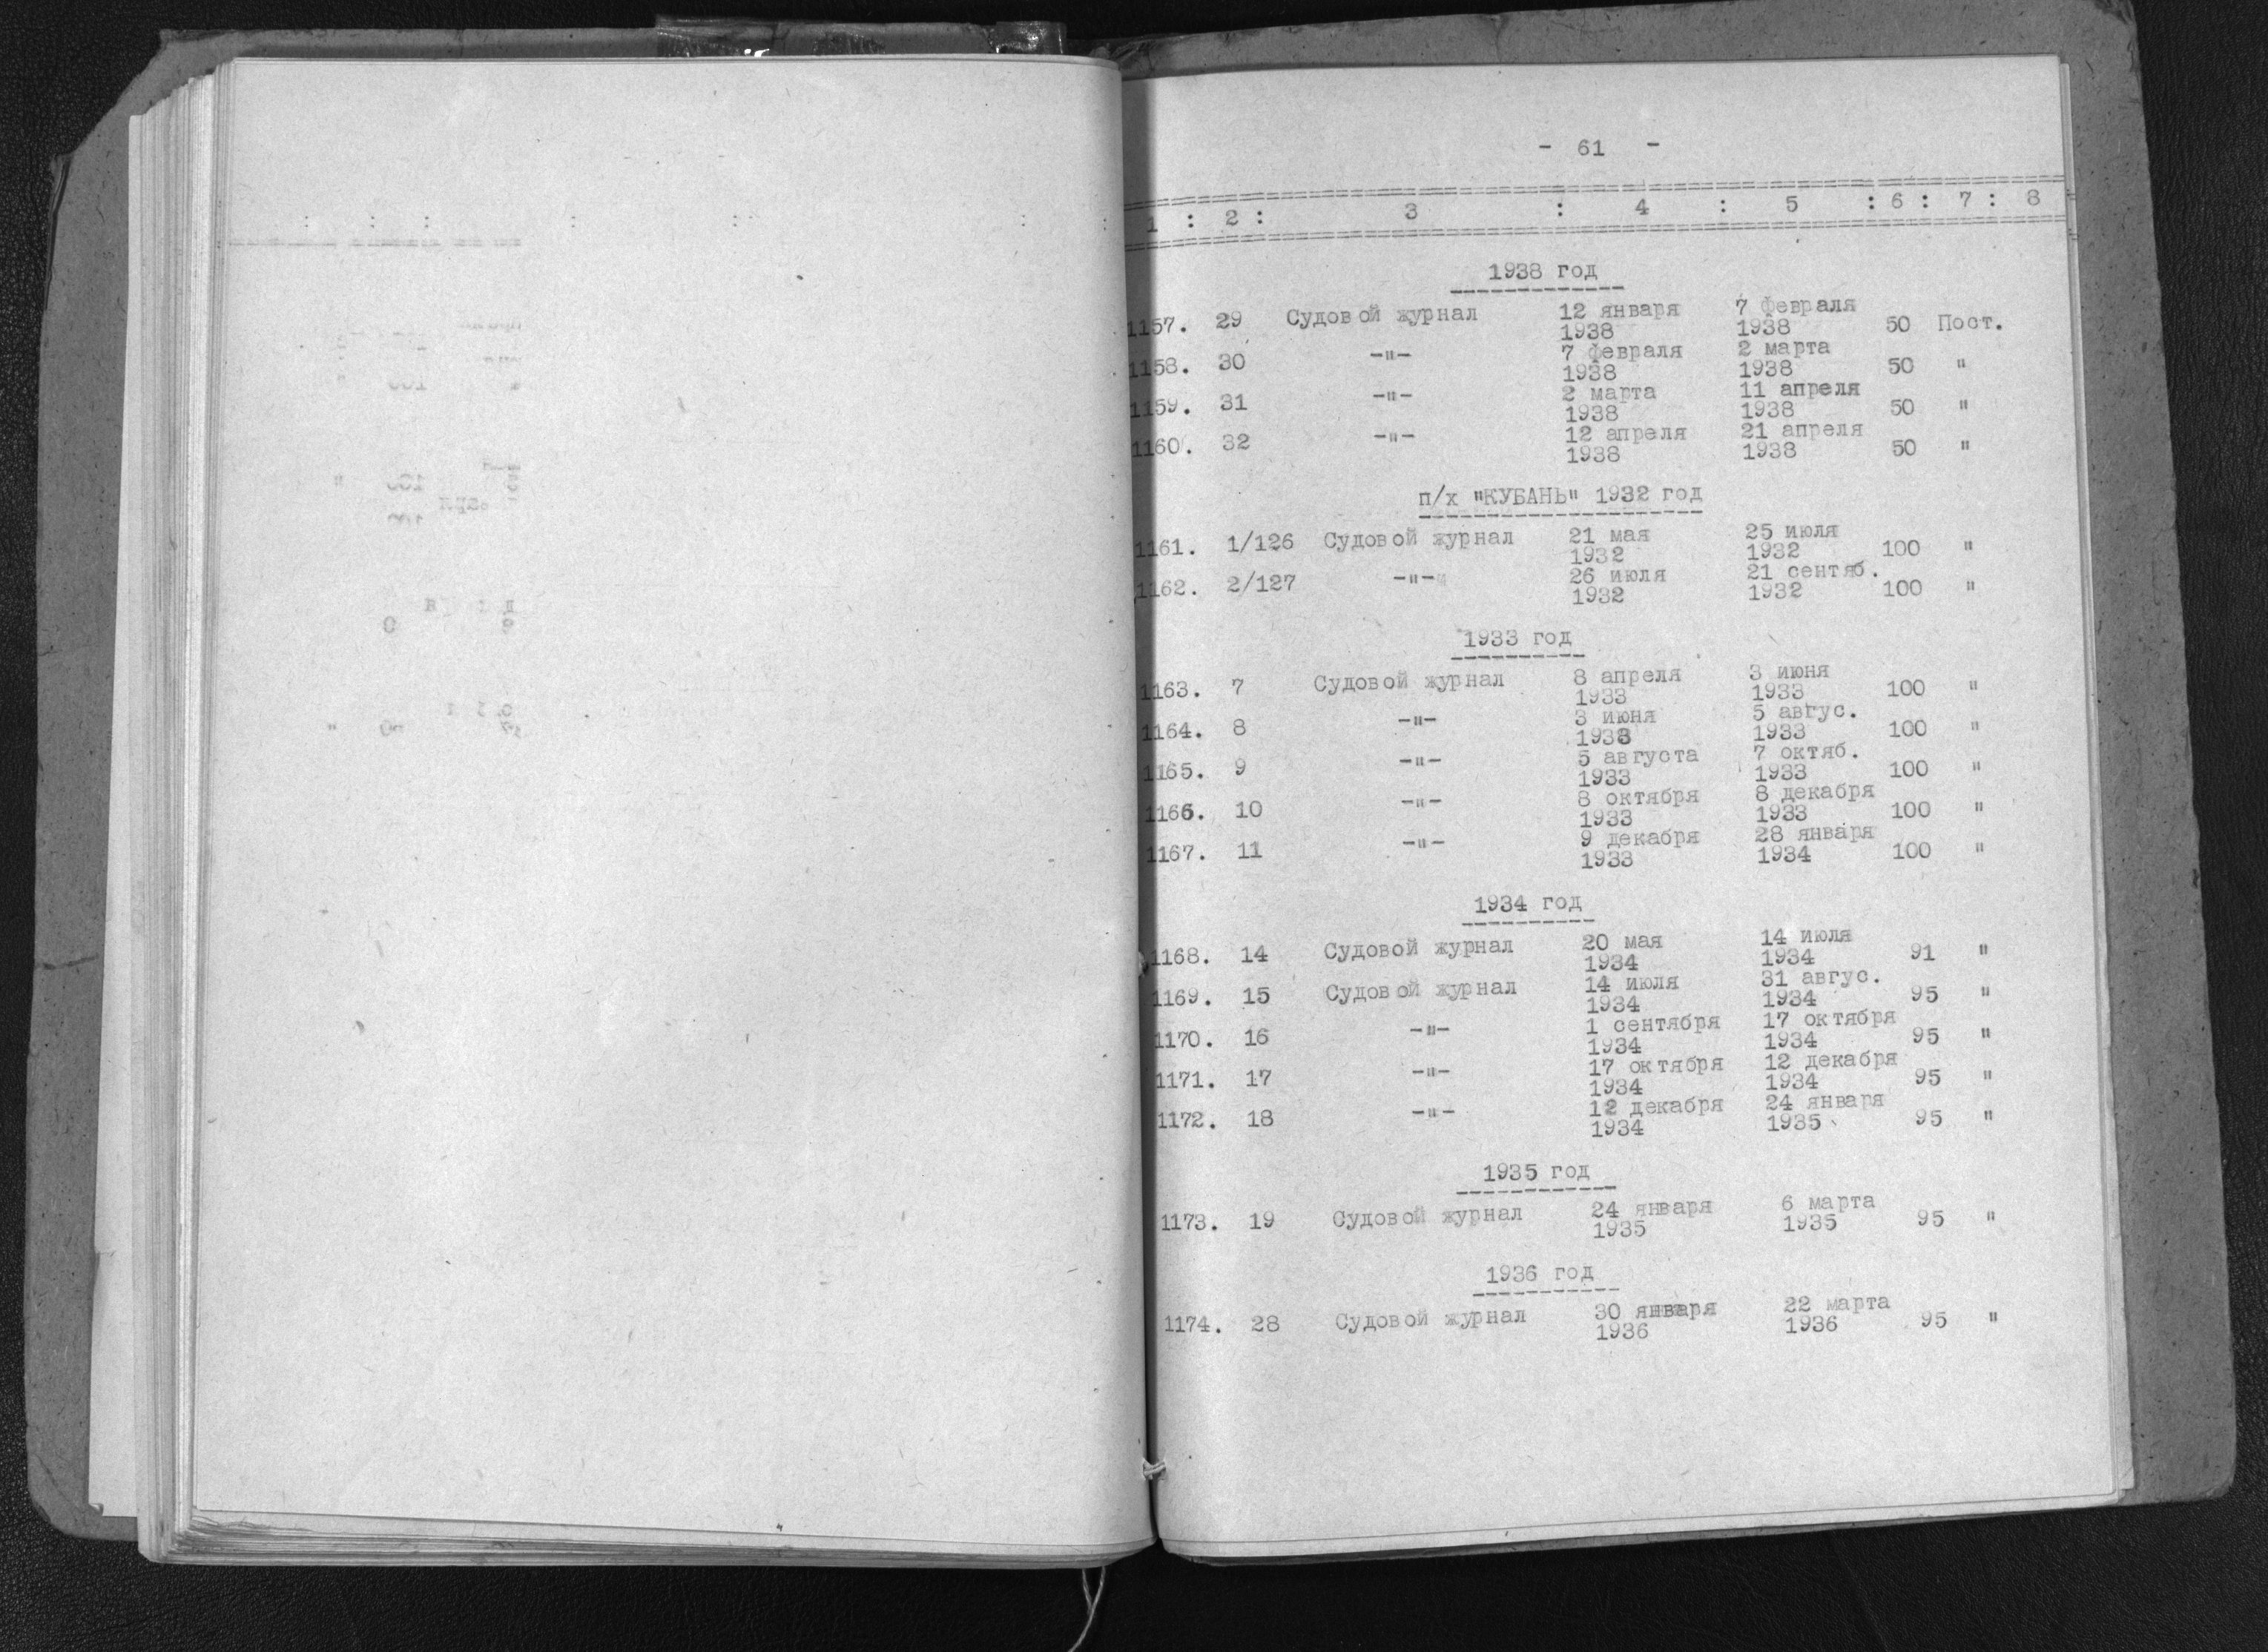 - 61 -
1 : 2 : 3 : 4 : 5 : 6 : 7 : 8
1938 год
1157. 29 Судовой журнал 12 января 7 февраля
1938 1938 50 Пост.
1158. 30 -"- 7 февраля 2 марта
1938 1938 50 "
1159. 31 -"- 2 марта 11 апреля
1938 1938 50 "
1160. 32 -"- 12 апреля 21 апреля
1938 1938 50 "
п/х "КУБАНЬ" 1932 год
1161. 1/126 Судовой журнал 21 мая 25 июля
1932 1932 100 "
1162. 2/127 -"- 26 июля 21 сентяб.
1932 1932 100 "
1933 год
1163. 7 Судовой журнал 8 апреля 3 июня
1933 1933 100 "
1164. 8 -"- 3 июня 5 авгус.
1933 1933 100 "
1165. 9 -"- 5 августа 7 октяб.
1933 1933 100 "
1166. 10 -"- 8 октября 8 декабря
1933 1933 100 "
1167. 11 -"- 9 декабря 28 января
1933 1934 100 "
1934 год
1168. 14 Судовой журнал 20 мая 14 июля
1934 1934 91 "
1169. 15 Судовой журнал 14 июля 31 авгус.
1934 1934 95 "
1170. 16 -"- 1 сентября 17 октября
1934 1934 95 "
1171. 17 -"- 17 октября 12 декабря
1934 1934 95 "
1172. 18 -"- 12 декабря 24 января
1934 1935 95 "
1935 год
1173. 19 Судовой журнал 24 января 6 марта
1935 1935 95 "
1936 год
1174. 28 Судовой журнал 30 января 22 марта
1936 1936 95 "